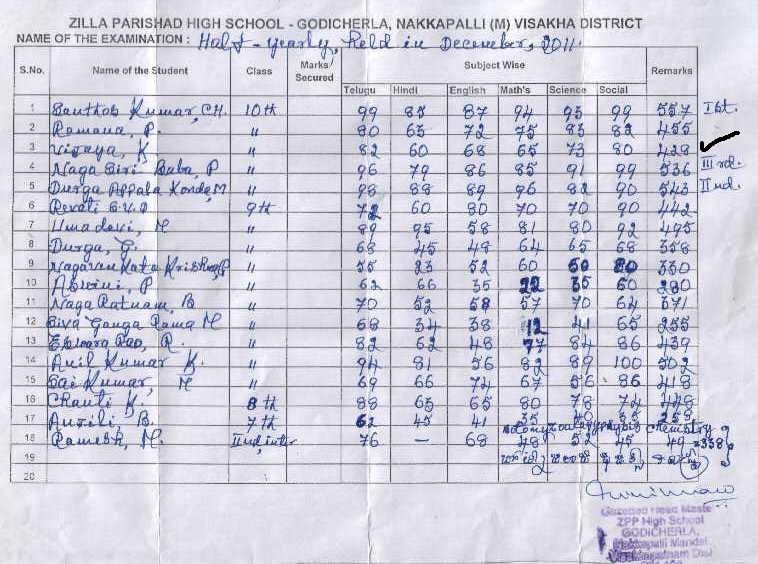 ZILLA PARISHAD HIGH SCHOOL - GODICHERLA, NAKKAPALLI (M) VISAKHA DISTRICT
NAME OF THE EXAMINATION : Half - yearly, Held in December, 2011.
S.No. Name of the Student Class Marks Secured Subject Wise Remarks
Telugu Hindi English Math's Science Social
1 Santhosh Kumar, CH. 10th 99 85 87 94 93 99 557 Ist.
2 Ramana, P. " 80 65 72 75 83 82 455
3 Vijaya, K " 82 60 68 65 73 80 428
4 Naga Siri Baba, P " 96 79 86 85 91 99 536 IIIrd.
5 Durga Appala Konda, M " 98 88 89 96 82 90 543 IInd.
6 Revati 9th 72 60 80 70 70 90 442
7 Umadevi, M " 89 95 58 81 80 92 495
8 Durga, G. " 68 45 48 64 65 68 358
9 P " 55 23 52 60 60 80 330
10 Aswini, P " 62 66 35 22 35 60 280
11 Naga Ratnam, B " 70 52 58 57 70 64 371
12 Siva Ganga Rama M " 68 34 38 12 41 65 255
13 Eswara Rao, R. " 82 62 48 77 84 86 439
14 Anil Kumar K. " 94 81 56 82 89 100 502
15 Sai Kumar, M " 69 66 74 67 56 86 418
16 Chanti K. 8th 88 65 65 80 78 72 448
17 B. 7th 62 45 41 35 40 35 258
18 Ramesh, M. IInd inter 76 – 68 48 52 45 49 =338
19
20
Gazetted Head Master
ZPP High School
GODICHERLA,
Nakkapalli Mandal
Visakhapatnam Dist